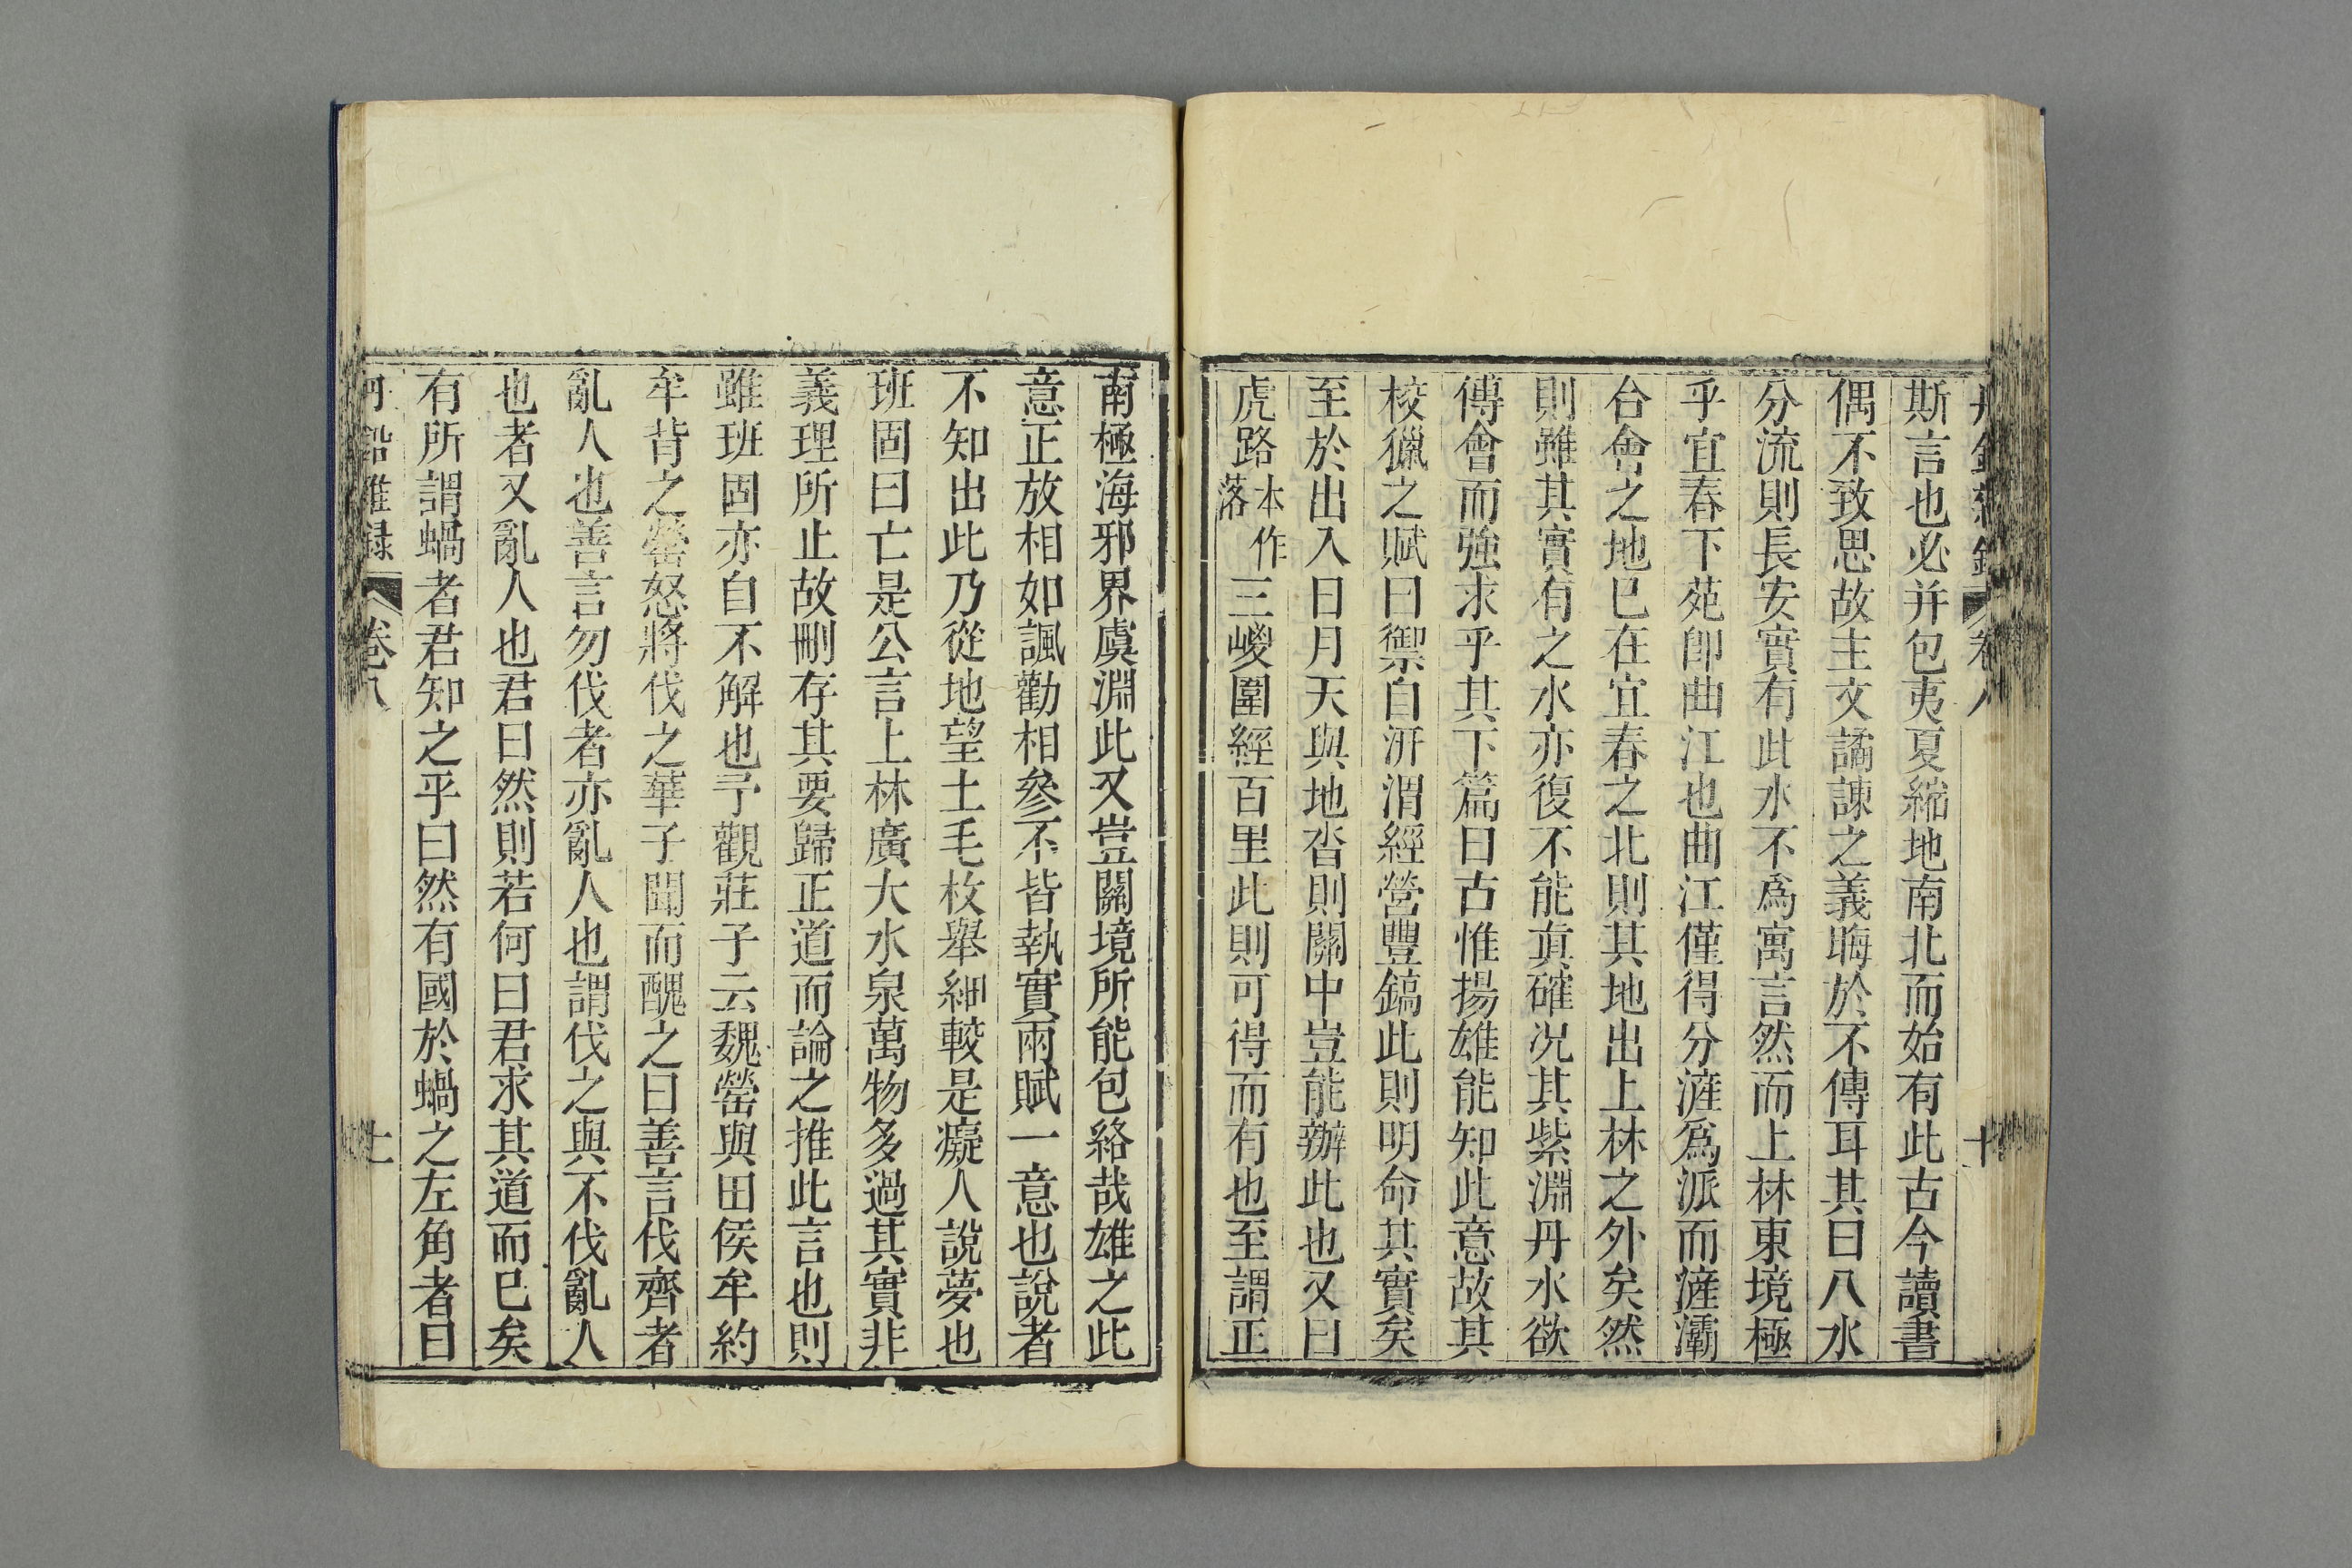 斯言也必并包夷夏綿地南北而始有此古今讀書
偶不致思故主文譎諫之義晦於不傳耳其曰八水
分流則長安實有此水不爲寓言然而上林東境極
乎宜春下苑卽曲江也曲江僅得分滻爲派而滻灞
合會之地巳在宜春之北則其地出上林之外矣然
則雖其實有之水亦復不能眞確况其紫淵丹水欲
傅會而強求乎其下篇曰古惟揚雄能知此意故其
校獵之賦曰禦自汧渭經營豐鎬此則明命其實矣
至於出入日月天與地沓則關中豈能辦此也又曰
虎路本作落三嵏圍經百里此則可得而有也至謂正
南極海邪界虞淵此又豈關境所能包絡哉雄之此
意正放相如諷勸相參不皆執實兩賦一意也說者
不知出此乃從地望土毛枚舉細較是癡人說夢也
班固曰亡是公言上林廣大水泉萬物多過其實非
義理所止故刪存其要歸正道而論之推此言也則
雖班固亦自不解也予觀莊子云魏罃與田侯牟約
牟背之罃怒將伐之華子聞而醜之曰善言伐齊者
亂人也善言勿伐者亦亂人也謂伐之與不伐亂人
也者又亂人也君曰然則若何曰君求其道而巳矣
有所謂蝸者君知之乎曰然有國於蝸之左角者曰
卷八